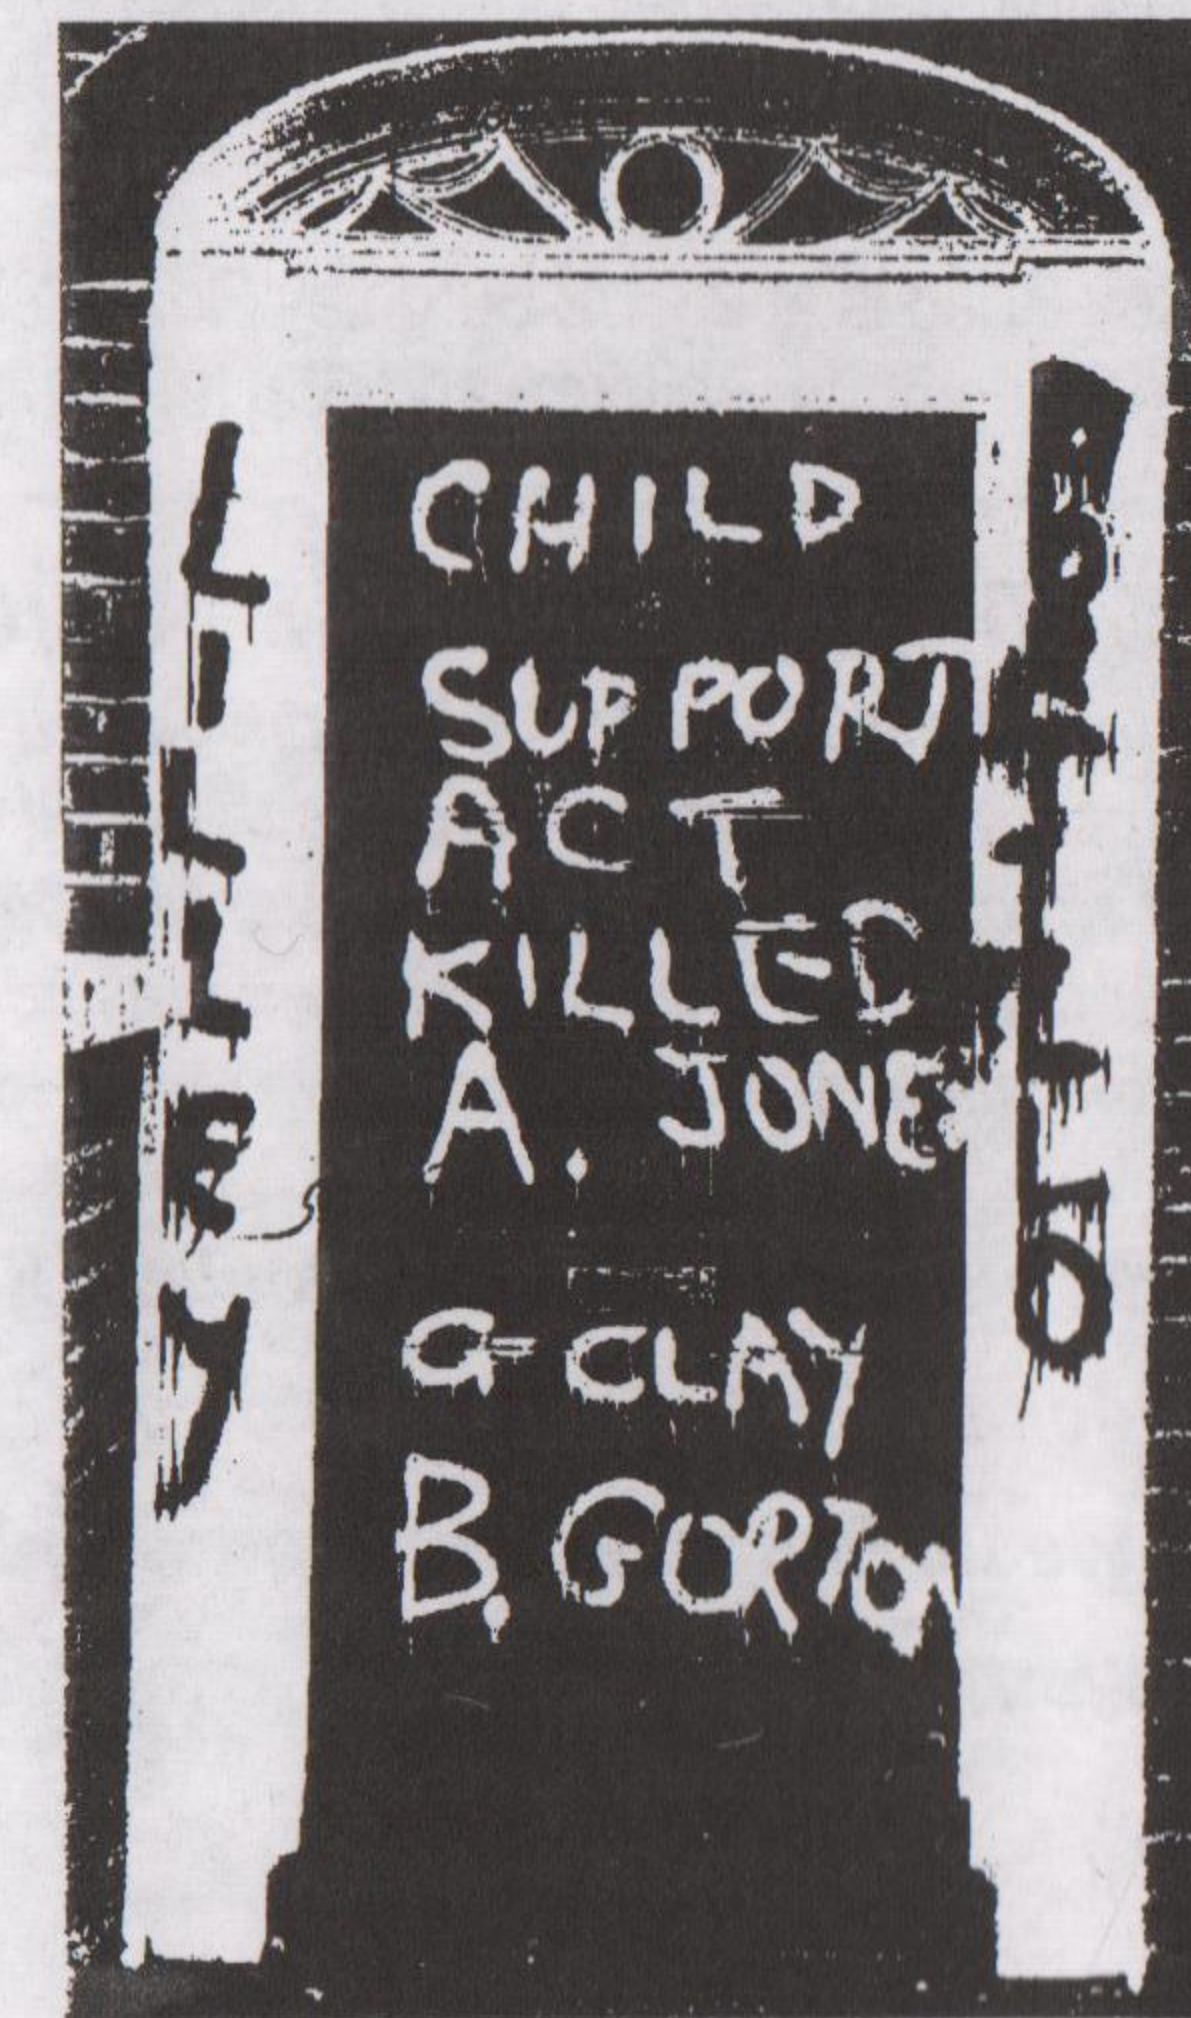 LILLEY
CHILD
SUPPORT
ACT
KILLED
A. JONES
G CLAY
B. GORTON